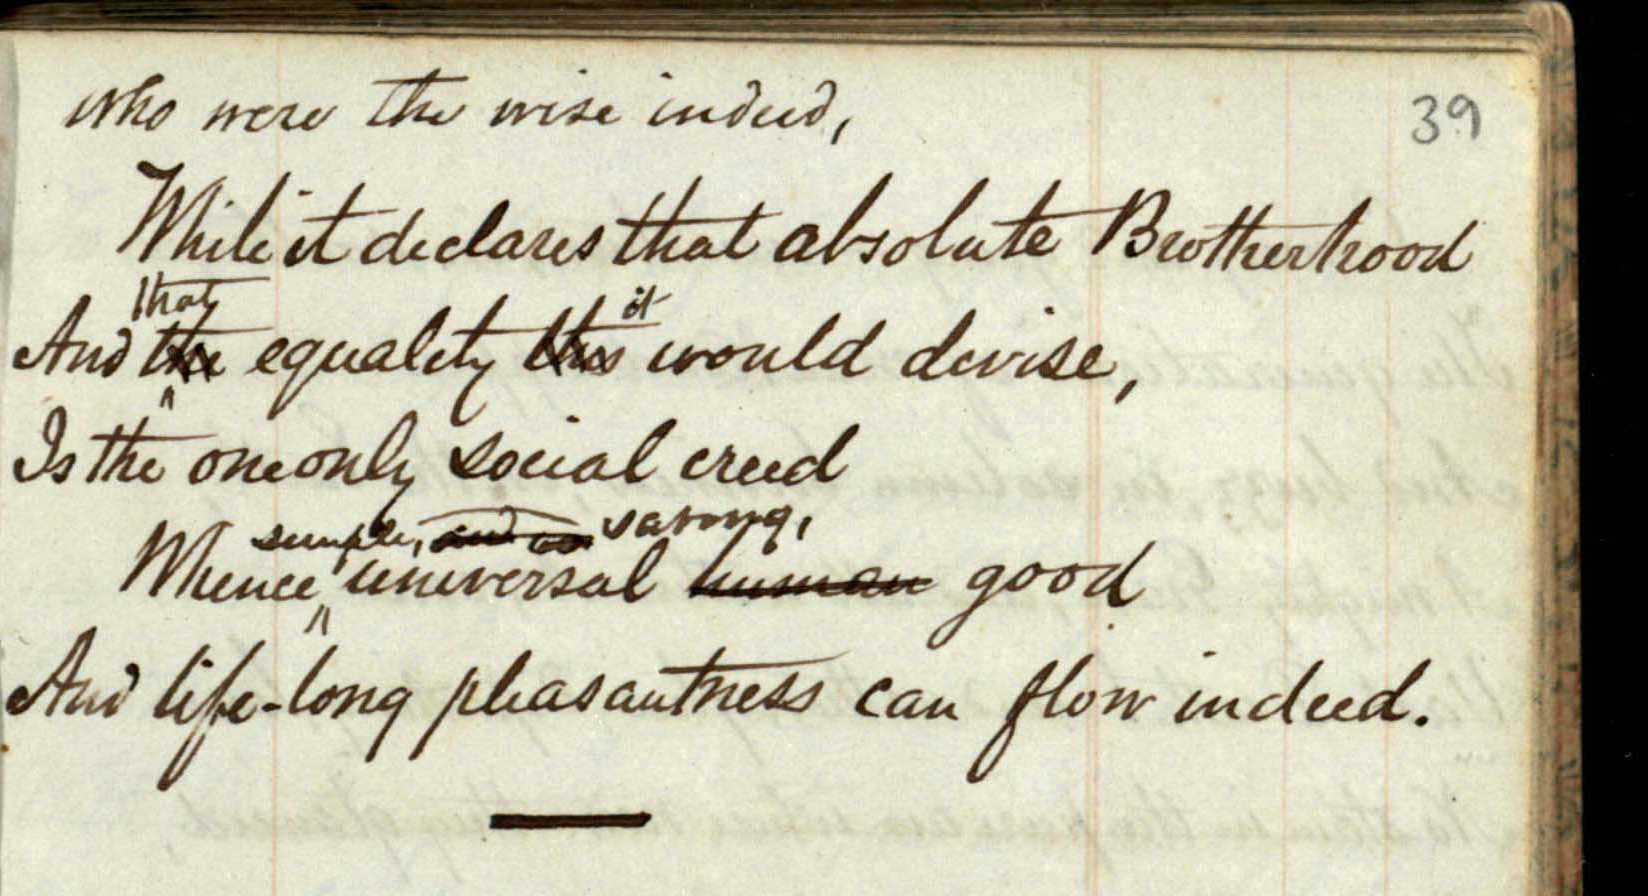 who were the wise indeed,
39
While it declares that absolute Brotherhood
that it
And the equality this would devise,
Is the one only social creed
simple, and strong,
Whence universal human good
And life-long pleasantness can flow indeed.